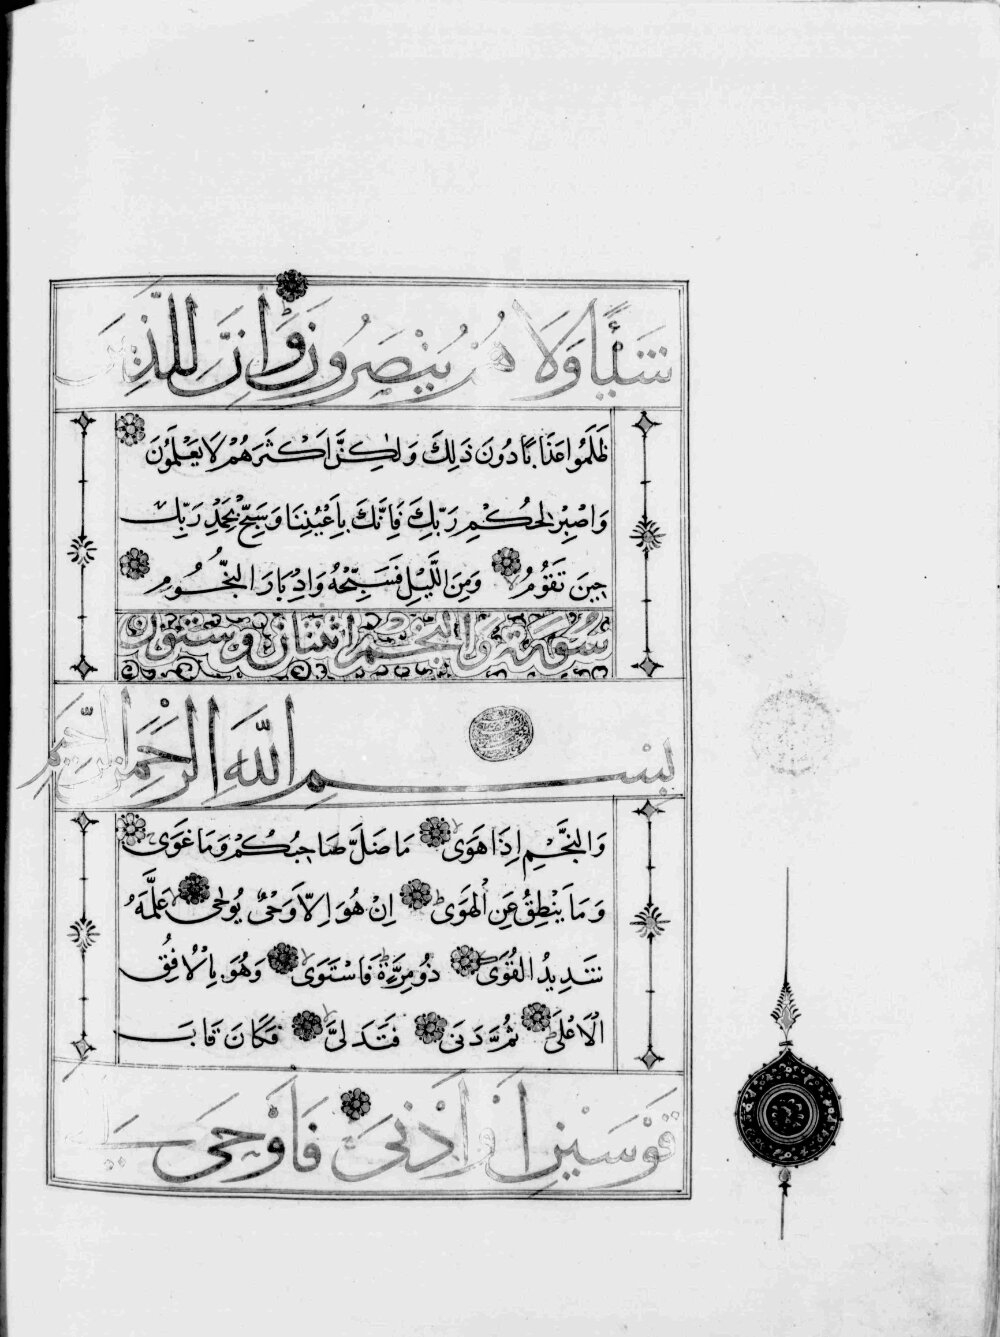 شَيْئًا وَلَا هُمْ يُنْصَرُونَ وَاِنَّ لِلَّذِينَ
ظَلَمُوا عَذَابًا دُونَ ذَلِكَ وَلٰكِنَّ اَكْثَرَهُمْ لَا يَعْلَمُونَ
وَاصْبِرْ لِحُكْمِ رَبِّكَ فَاِنَّكَ بِاَعْيُنِنَا وَسَبِّحْ بِحَمْدِ رَبِّكَ
حِينَ تَقُومُ وَمِنَ اللَّيْلِ فَسَبِّحْهُ وَاِدْبَارَ النُّجُومِ
سورة والنجم اثنتان وستون
بِسْمِ اللّٰهِ الرَّحْمٰنِ الرَّحِيمِ
وَالنَّجْمِ اِذَا هَوَى مَا ضَلَّ صَاحِبُكُمْ وَمَا غَوَى
وَمَا يَنْطِقُ عَنِ الْهَوَى اِنْ هُوَ اِلَّا وَحْىٌ يُوحٰى عَلَّمَهُ
شَدِيدُ الْقُوَى ذُو مِرَّةٍ فَاسْتَوَى وَهُوَ بِالْاُفُقِ
الْاَعْلَى ثُمَّ دَنَى فَتَدَلَّى فَكَانَ قَابَ
قَوْسَيْنِ اَوْ اَدْنَى فَاَوْحَى